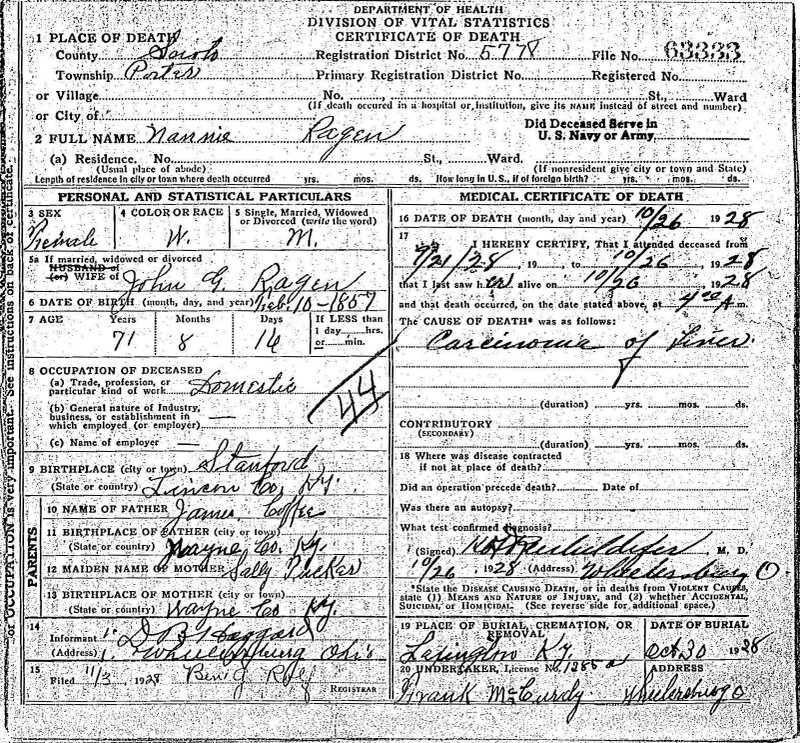 DEPARTMENT OF HEALTH
DIVISION OF VITAL STATISTICS
CERTIFICATE OF DEATH
1 PLACE OF DEATH
County
Registration District No. 5778 File No. 63333
Township Porter Primary Registration District No. Registered No.
or Village No. St., Ward
(If death occured in a hospital or Institution, give its NAME instead of street and number)
or City of
Did Deceased Serve in
U. S. Navy or Army,
2 FULL NAME Nannie Ragen
(a) Residence. No. St., Ward.
(Usual place of abode) (If nonresident give city or town and State)
Length of residence in city or town where death occurred yrs. mos. ds. How long in U. S., if of foreign birth? yrs. mos. ds.
PERSONAL AND STATISTICAL PARTICULARS
3 SEX 4 COLOR OR RACE 5 Single, Married, Widowed
or Divorced (write the word)
Female W. M.
5a If married, widowed or divorced
HUSBAND of
(or) WIFE of John G. Ragen
6 DATE OF BIRTH (month, day, and year) Feb. 10-1857
7 AGE Years Months Days If LESS than
1 day hrs.
or min.
71 8 16
8 OCCUPATION OF DECEASED
(a) Trade, profession, or
particular kind of work Domestic
(b) General nature of Industry,
business, or establishment in
which employed (or employer) —
(c) Name of employer —
44
9 BIRTHPLACE (city or town) Stanford,
(State or country) Lincon Co, Ky.
PARENTS
10 NAME OF FATHER James Coffee
11 BIRTHPLACE OF FATHER (city or town)
(State or country) Wayne Co. Ky.
12 MAIDEN NAME OF MOTHER Sally Tucker
13 BIRTHPLACE OF MOTHER (city or town)
(State or country) Wayne Co Ky.
14
Informant D. B. Haggard
(Address) Wheelersburg Ohio
15
Filed 11/3, 1928 Benj Rolf
REGISTRAR
MEDICAL CERTIFICATE OF DEATH
16 DATE OF DEATH (month, day and year) 10/26 1928
17
I HEREBY CERTIFY, That I attended deceased from
9/21/28 19 , to 10/26 1928
that I last saw her alive on 10/26 1928
and that death occurred, on the date stated above, at 4 00 A m.
The CAUSE OF DEATH* was as follows:
Carcinoma of Liver
(duration) yrs. mos. ds.
CONTRIBUTORY
(SECONDARY)
(duration) yrs. mos. ds.
18 Where was disease contracted
if not at place of death?
Did an operation precede death? Date of
Was there an autopsy?
What test confirmed diagnosis?
(Signed) M. D.
10/26 1928 (Address) Wheelersburg O
*State the DISEASE CAUSING DEATH, or in deaths from VIOLENT CAUSES,
state (1) MEANS AND NATURE OF INJURY, and (2) whether ACCIDENTAL,
SUICIDAL or HOMICIDAL. (See reverse side for additional space.)
19 PLACE OF BURIAL, CREMATION, OR
REMOVAL
DATE OF BURIAL
Lexington Ky. Oct. 30 1928
20 UNDERTAKER, License No. 1385a ADDRESS
Frank McCurdy Wheelersburg O
of OCCUPATION is very important. See instructions on back of certificate.